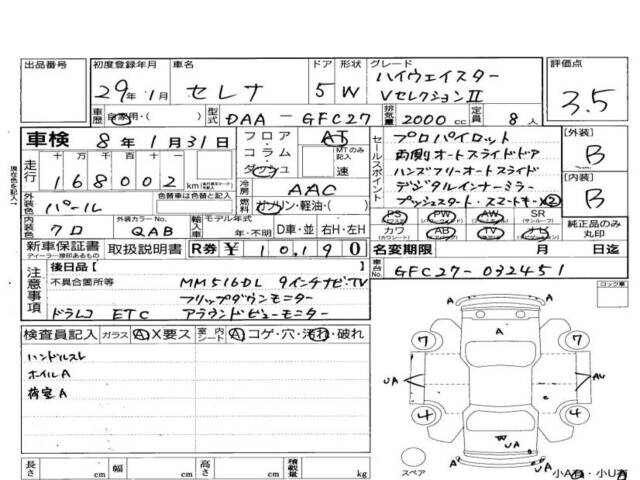 出品番号 初度登録年月 車名 ドア 形状 グレード 評価点
29年 1月 セレナ 5 W ハイウェイスター VセレクションII 3.5
車歴 自家用・( ) 型式 DAA-GFC27 排気量 2000cc 定員 8人
車検 8年 1月 31日 フロア・コラム・ダッシュ AT MTのみ記入 速
走行 十万 万 千 百 十 一
168002km
冷房 AAC
外装色 パール 色替車は色替と記入 燃料 ガソリン・軽油・( )
内装色 クロ 外装カラーNo. QAB 輸入車 モデル年式 年・不明 D車・並 右H・左H
セールスポイント
プロパイロット
両側オートスライドドア
ハンズフリーオートスライド
デジタルインナーミラー
プッシュスタート スマートキー×2
[外装] B
[内装] B
PS PW AW SR (サンルーフ)
カワ (カワシート) AB TV ナビ
純正品のみ丸印
新車保証書 取扱説明書 R券 ¥10,190
ディーラー捺印あるもの
名変期限 月 日迄
車台No. GFC27-032451
注意事項
後日品【 】
不具合箇所等 MM516DL 9インチナビ・TV
フリップダウンモニター
ドラレコ ETC アラウンドビューモニター
ロック車
検査員記入 ガラス A X要ス 室内シート A コゲ・穴・汚れ・破れ
ハンドルスレ
ホイルA
荷室A
A
7 7
UA AU
4 4
W UA
A UA A
スペア
小A有・小U有
長さ cm 幅 cm 高さ cm 積載量 kg